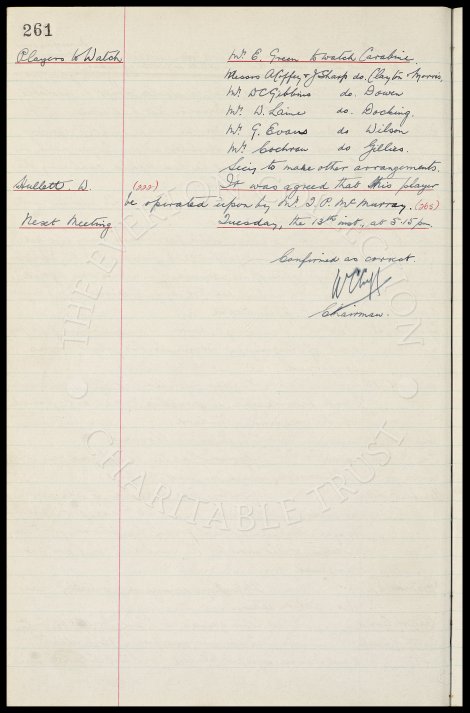 261
Players to Watch
Mr. E. Green to watch Carabine.
Messrs A Coffey & J Sharp do. Clayton & Morris.
Mr. D C Gibbins do. Bowen
Mr. W. Laine do. Docking.
Mr. G. Evans do Wilson
Mr. Cochran do Gillies.
Secy to make other arrangements.
Hullett W. (222) It was agreed that this player
be operated upon by Mr. T. P. McMurray. (265)
Next Meeting Tuesday, the 13th inst, at 5-15 pm.
Confirmed as correct.
W C Cuff
Chairman.
THE EVERTON COLLECTION
CHARITABLE TRUST